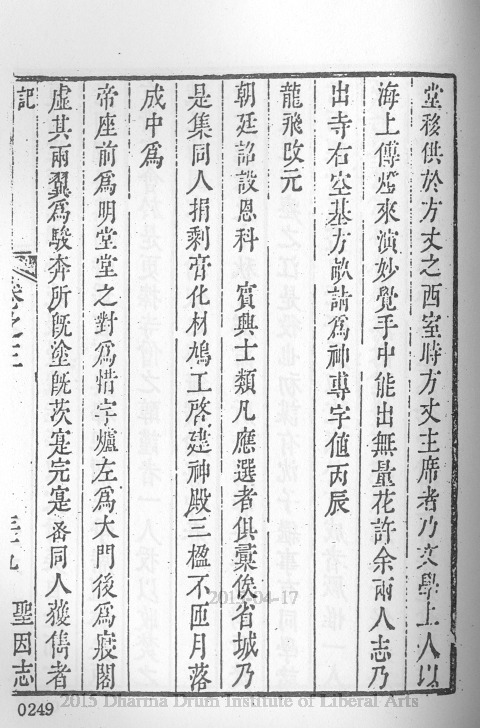 堂移供於方丈之西室時方丈主席者乃文學上人以
海上傳燈來演妙覺手中能出無量花許余兩人志乃
出寺右空基方畝請爲神專宇値丙辰
龍飛改元
朝廷詔設恩科 賓興士類凡應選者俱彚俟省城乃
是集同人捐剩膏化材鳩工啓建神殿三楹不匝月落
成中爲
帝座前爲明堂堂之對爲惜字爐左爲大門後爲寢閣
虛其兩翼爲駿奔所旣塗旣茨寔完寔 同人獲儁者
記
卷之三
三九
聖因志
2015-04-17
0249
2015 Dharma Drum Institute of Liberal Arts